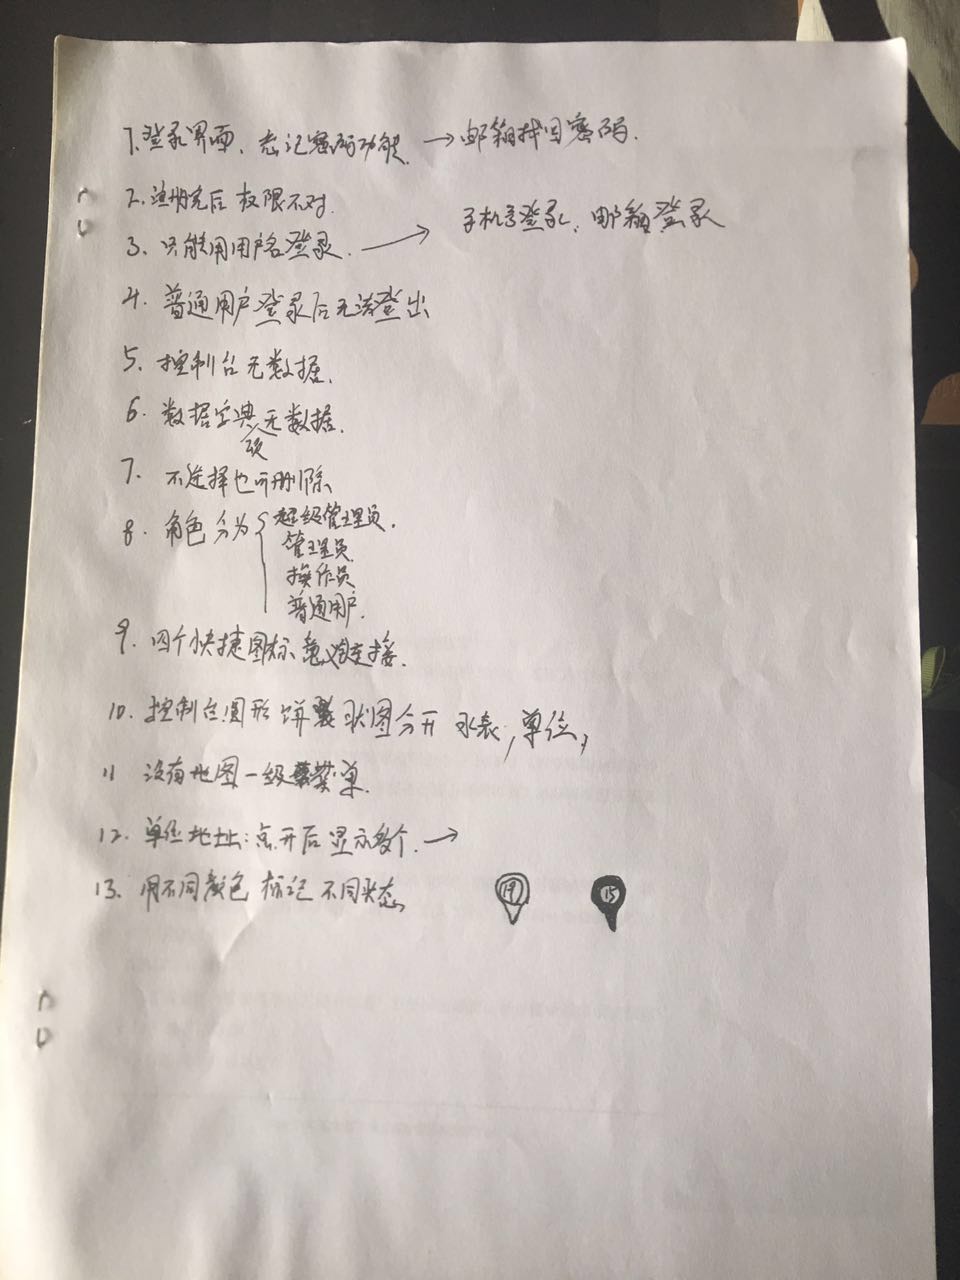 1.登录界面、忘记密码功能 → 邮箱找回密码.
2.注册完后权限不对.
3、只能用用户名登录. → 手机号登录、邮箱登录
4、普通用户登录后无法登出
5、控制台无数据.
6.数据字典无数据.
项
7、不选择也可删除
8、角色分为 { 超级管理员.
管理员
操作员
普通用户.
9、四个快捷图标 连接.
10、控制台圆形饼状图分开 水表,单位,
11 没有地图一级菜单.
12、单位地址:点开后显示多个. →
13、用不同颜色标记不同状态
19 15